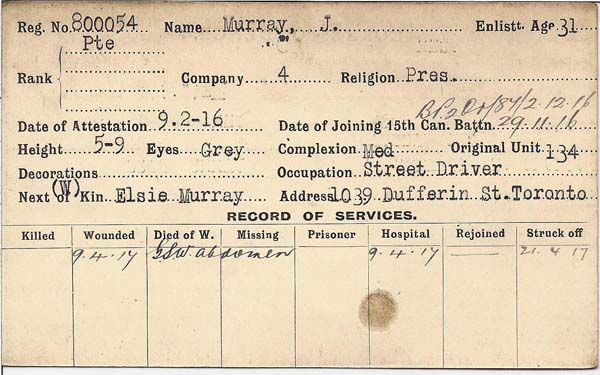 Reg. No. 800054 Name Murray, J. Enlistt. Age 31
Pte
Rank Company 4 Religion Pres.
2.12.16
Date of Attestation 9.2-16 Date of Joining 15th Can. Battn. 29.11.16
Height 5-9 Eyes Grey Complexion Med Original Unit 134
Decorations Occupation Street Driver
(W)
Next of Kin Elsie Murray Address 1039 Dufferin St. Toronto
RECORD OF SERVICES.
Killed Wounded Died of W. Missing Prisoner Hospital Rejoined Struck off
9.4.17 GSW. abdomen 9.4.17 — 21.4.17